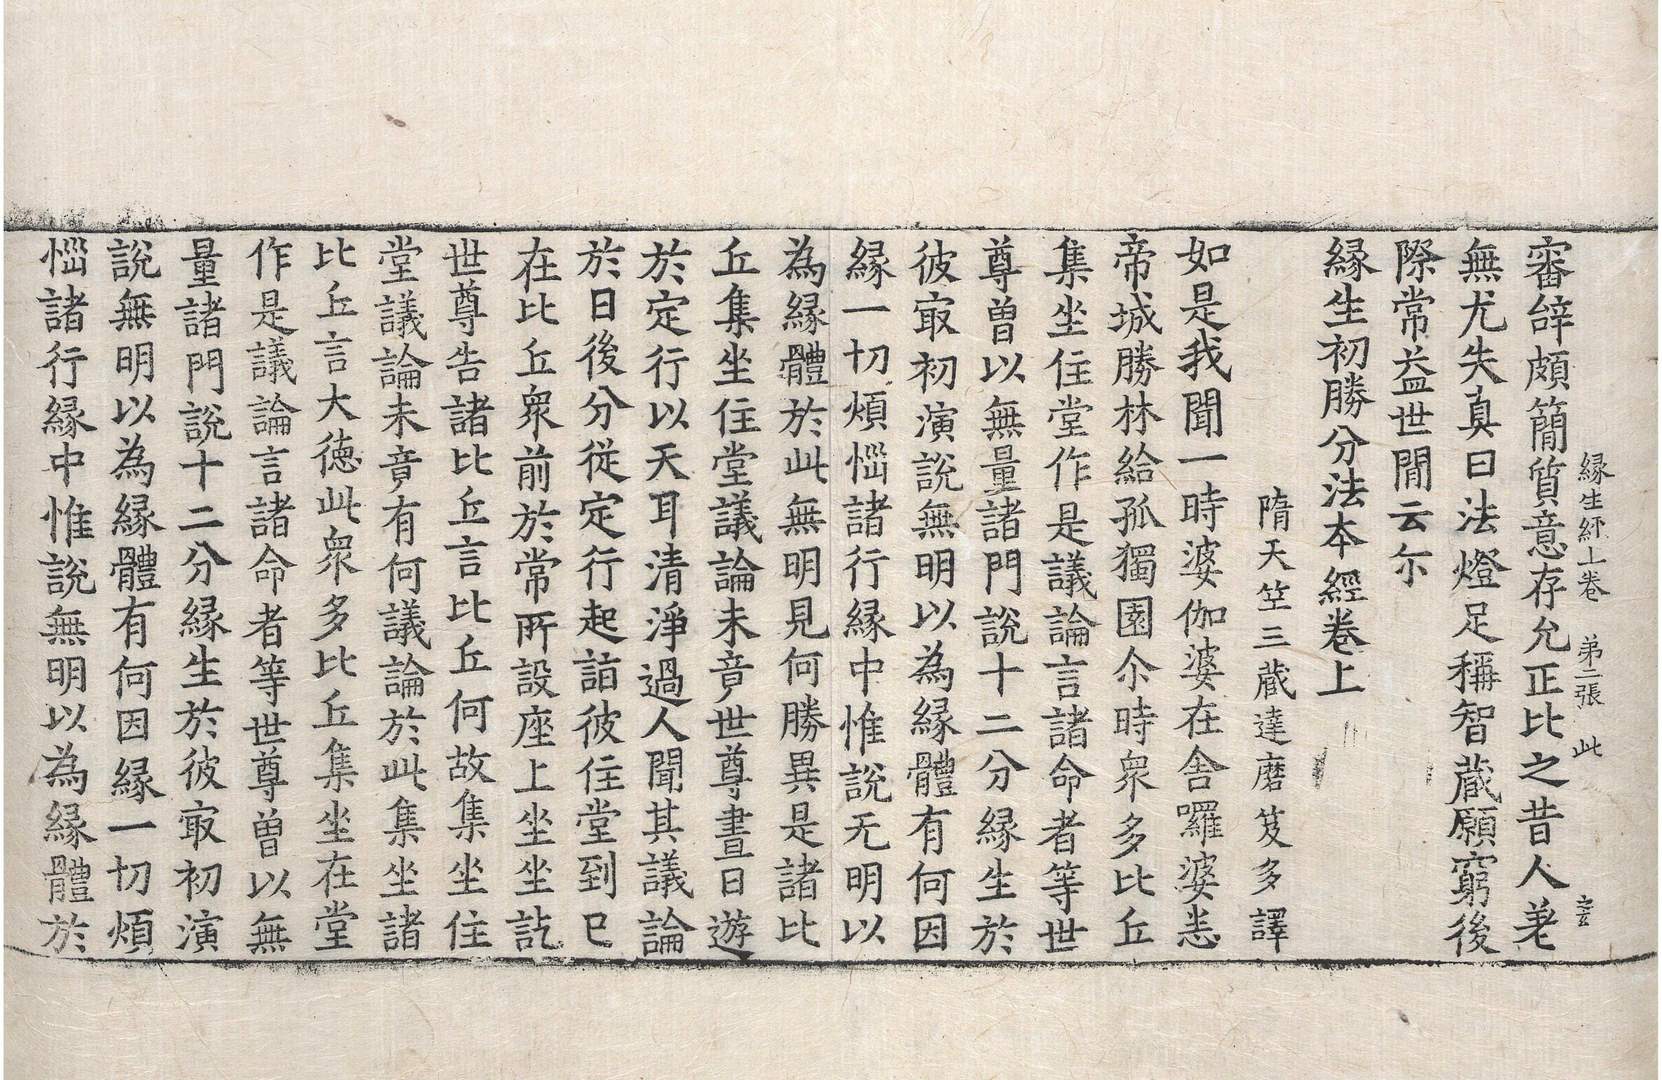 縁生經上卷　第二張　此
審辝頗簡質意存允正比之昔人差
無尤失真曰法燈足稱智蔵願窮後
際常益世間云尓
縁生初勝分法本經卷上
隋天笁三蔵達磨笈多譯
如是我聞一時婆伽婆在舎囉婆悉
帝城勝林給孤獨園尒時衆多比丘
集坐住堂作是議論言諸命者等世
尊曽以無量諸門說十二分縁生於
彼㝡初演說無明以為縁體有何因
縁一切煩惱諸行縁中惟說无明以
為縁體於此無明見何勝異是諸比
丘集坐住堂議論未竟世尊晝日遊
於定行以天耳清淨過人聞其議論
於日後分従定行起詣彼住堂到已
在比丘衆前於常所設座上坐坐訖
世尊告諸比丘言比丘何故集坐住
堂議論未竟有何議論於此集坐諸
比丘言大徳此衆多比丘集坐在堂
作是議論言諸命者等世尊曽以無
量諸門說十二分縁生於彼㝡初演
說無明以為縁體有何因縁一切煩
惱諸行縁中惟說無明以為縁體於